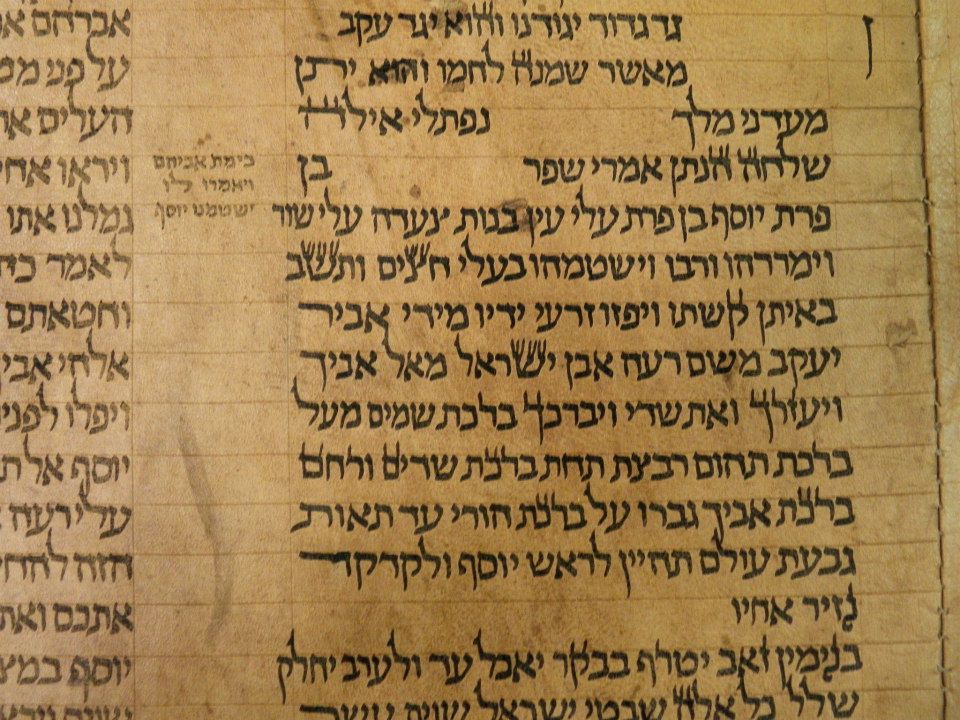 ן
גד גדוד יגודנו והוא יגד עקב
מאשר שמנה לחמו והוא יתן
מעדני מלך נפתלי אילה
שלחה הנתן אמרי שפר בן
פרת יוסף בן פרת עלי עין בנות צעדה עלי שור
וימררהו ורבו וישטמהו בעלי חצים ותשב
באיתן קשתו ויפזו זרעי ידיו מידי אביר
יעקב משם רעה אבן ישראל מאל אביך
ויעזרך ואת שדי ויברכך ברכת שמים מעל
ברכת תהום רבצת תחת ברכת שדים ורחם
ברכת אביך גברו על ברכת הורי עד תאות
גבעת עולם תהיין לראש יוסף ולקדקד
נזיר אחיו
בנימין זאב יטרף בבקר יאכל עד ולערב יחלק
שלל כל אלה שבטי ישראל שנים עשר
כי מת אביהם
ויאמרו לו
ישטמנו יוסף
אברהם
על פני
העלים
ויראו אחי
גמלנו אתו
לאמר
וחטאתם
אלהי
ויפלו
יוסף אל
עלי רעה
הזה
אתכם ואת
יוסף